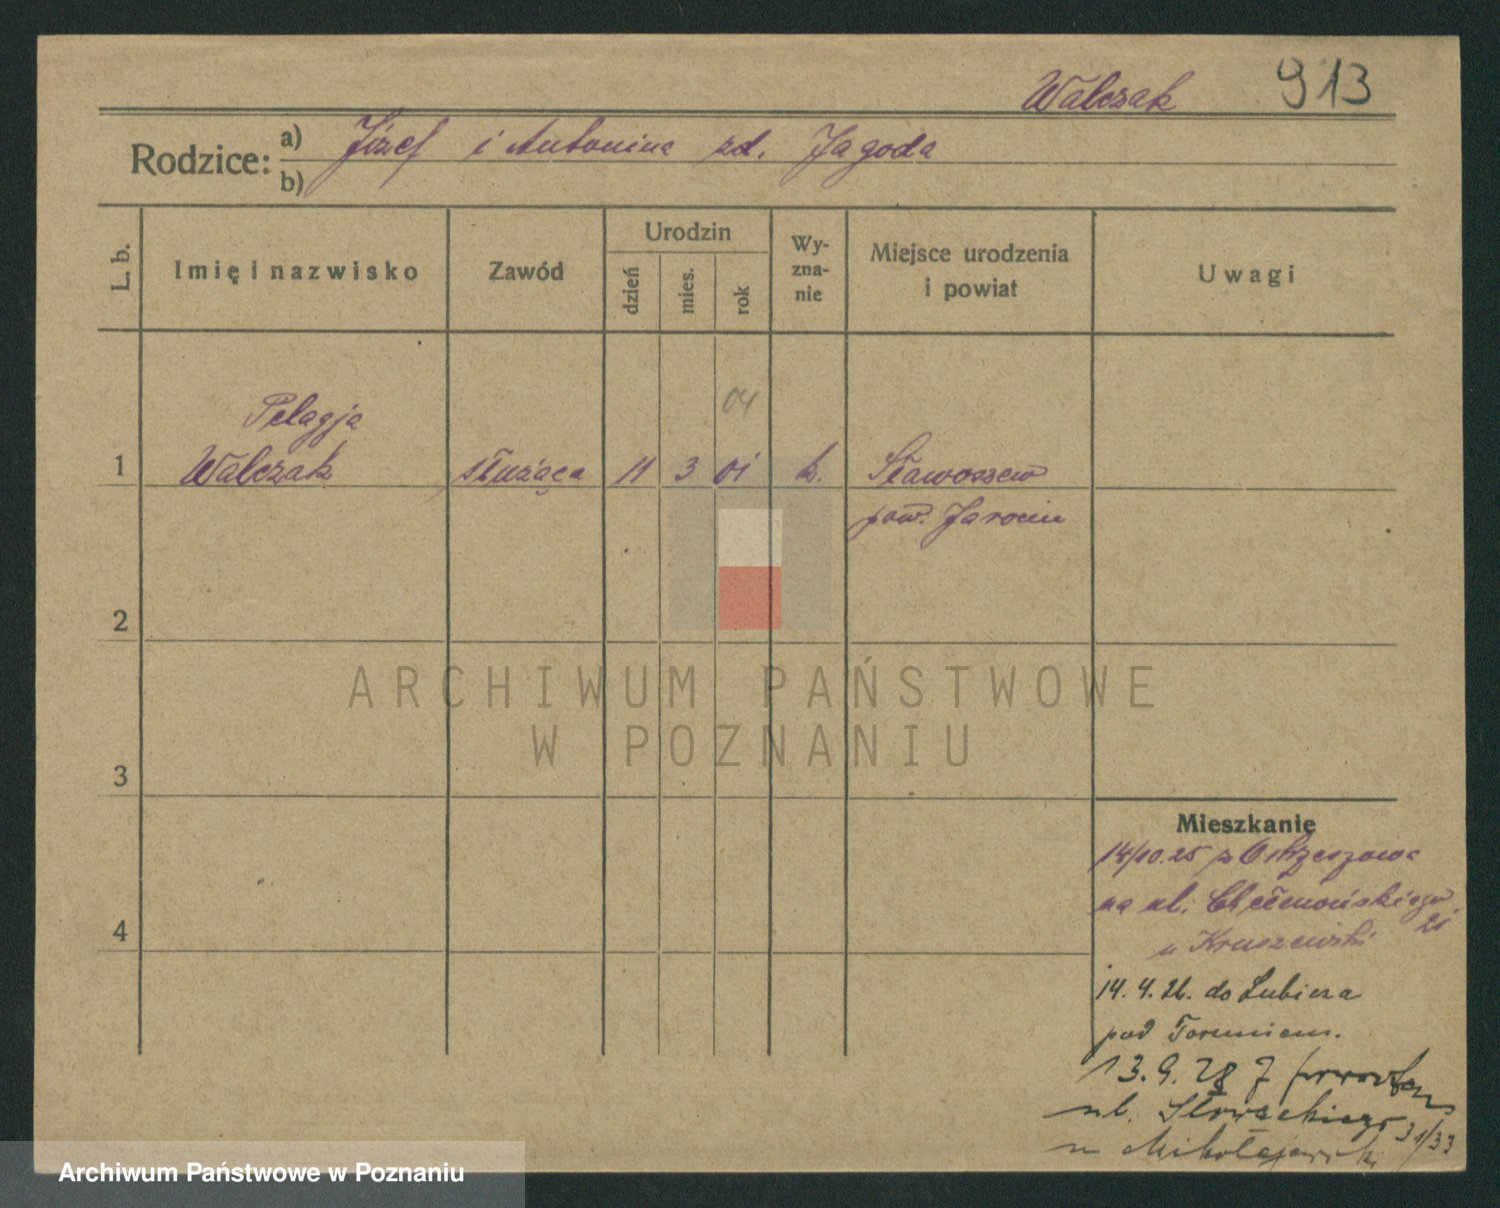 Walczak 913
Rodzice: a) Józef i Antonina zd. Jagoda
b)
L. b.
Imię i nazwisko
Zawód
Urodzin
dzień
mies.
rok
Wy-
zna-
nie
Miejsce urodzenia
i powiat
Uwagi
04
Pelagja
1 Walczak służąca 11 3 01 k. Sławoszew
pow. Jarocin
2
3
4
Mieszkanie
14/10.25 z Ostrzeszowa
na ul. Chełmońskiego
21
u Kruszewski
14.4.26. do Lubicza
pod Toruniem.
13.9.28 z
ul. Słowackiego 31/33
u Mikołajewski
ARCHIWUM PAŃSTWOWE
W POZNANIU
Archiwum Państwowe w Poznaniu